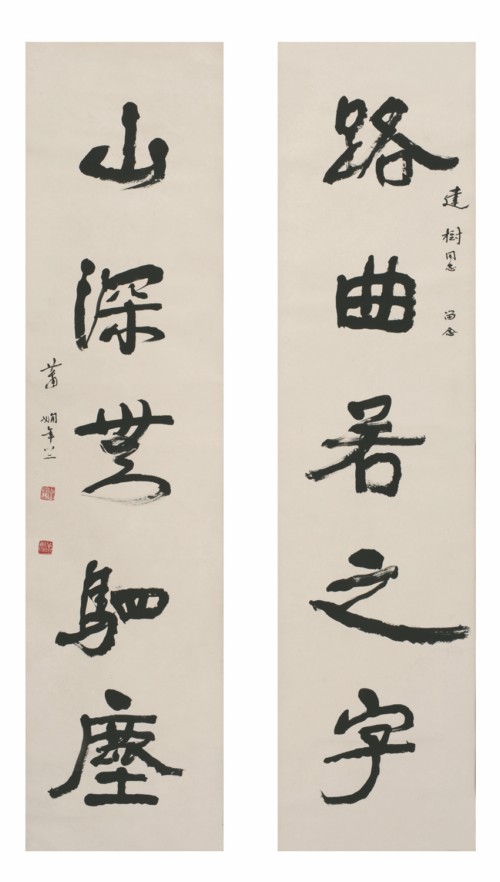 建樹同志 留念
路曲若之字
山深無駟塵
蕭嫻年八二